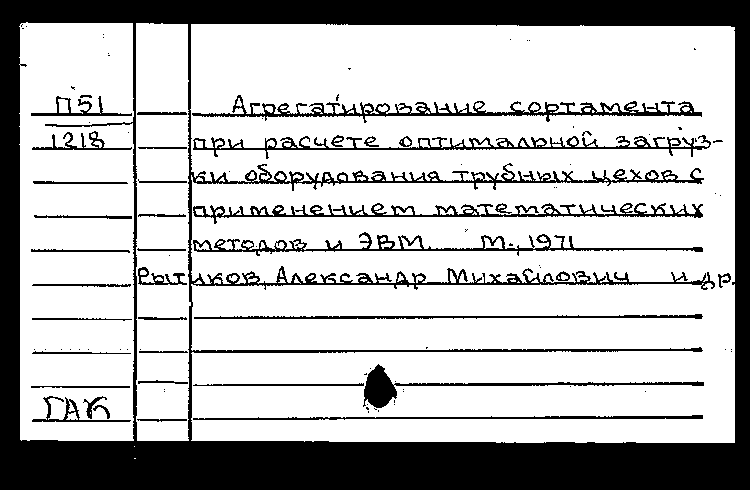 П51
1218
Агрегатирование сортамента
при расчете оптимальной загруз-
ки оборудования трубных цехов с
применением математических
методов и ЭВМ. М., 1971
Рытиков, Александр Михайлович и др.
ГАК